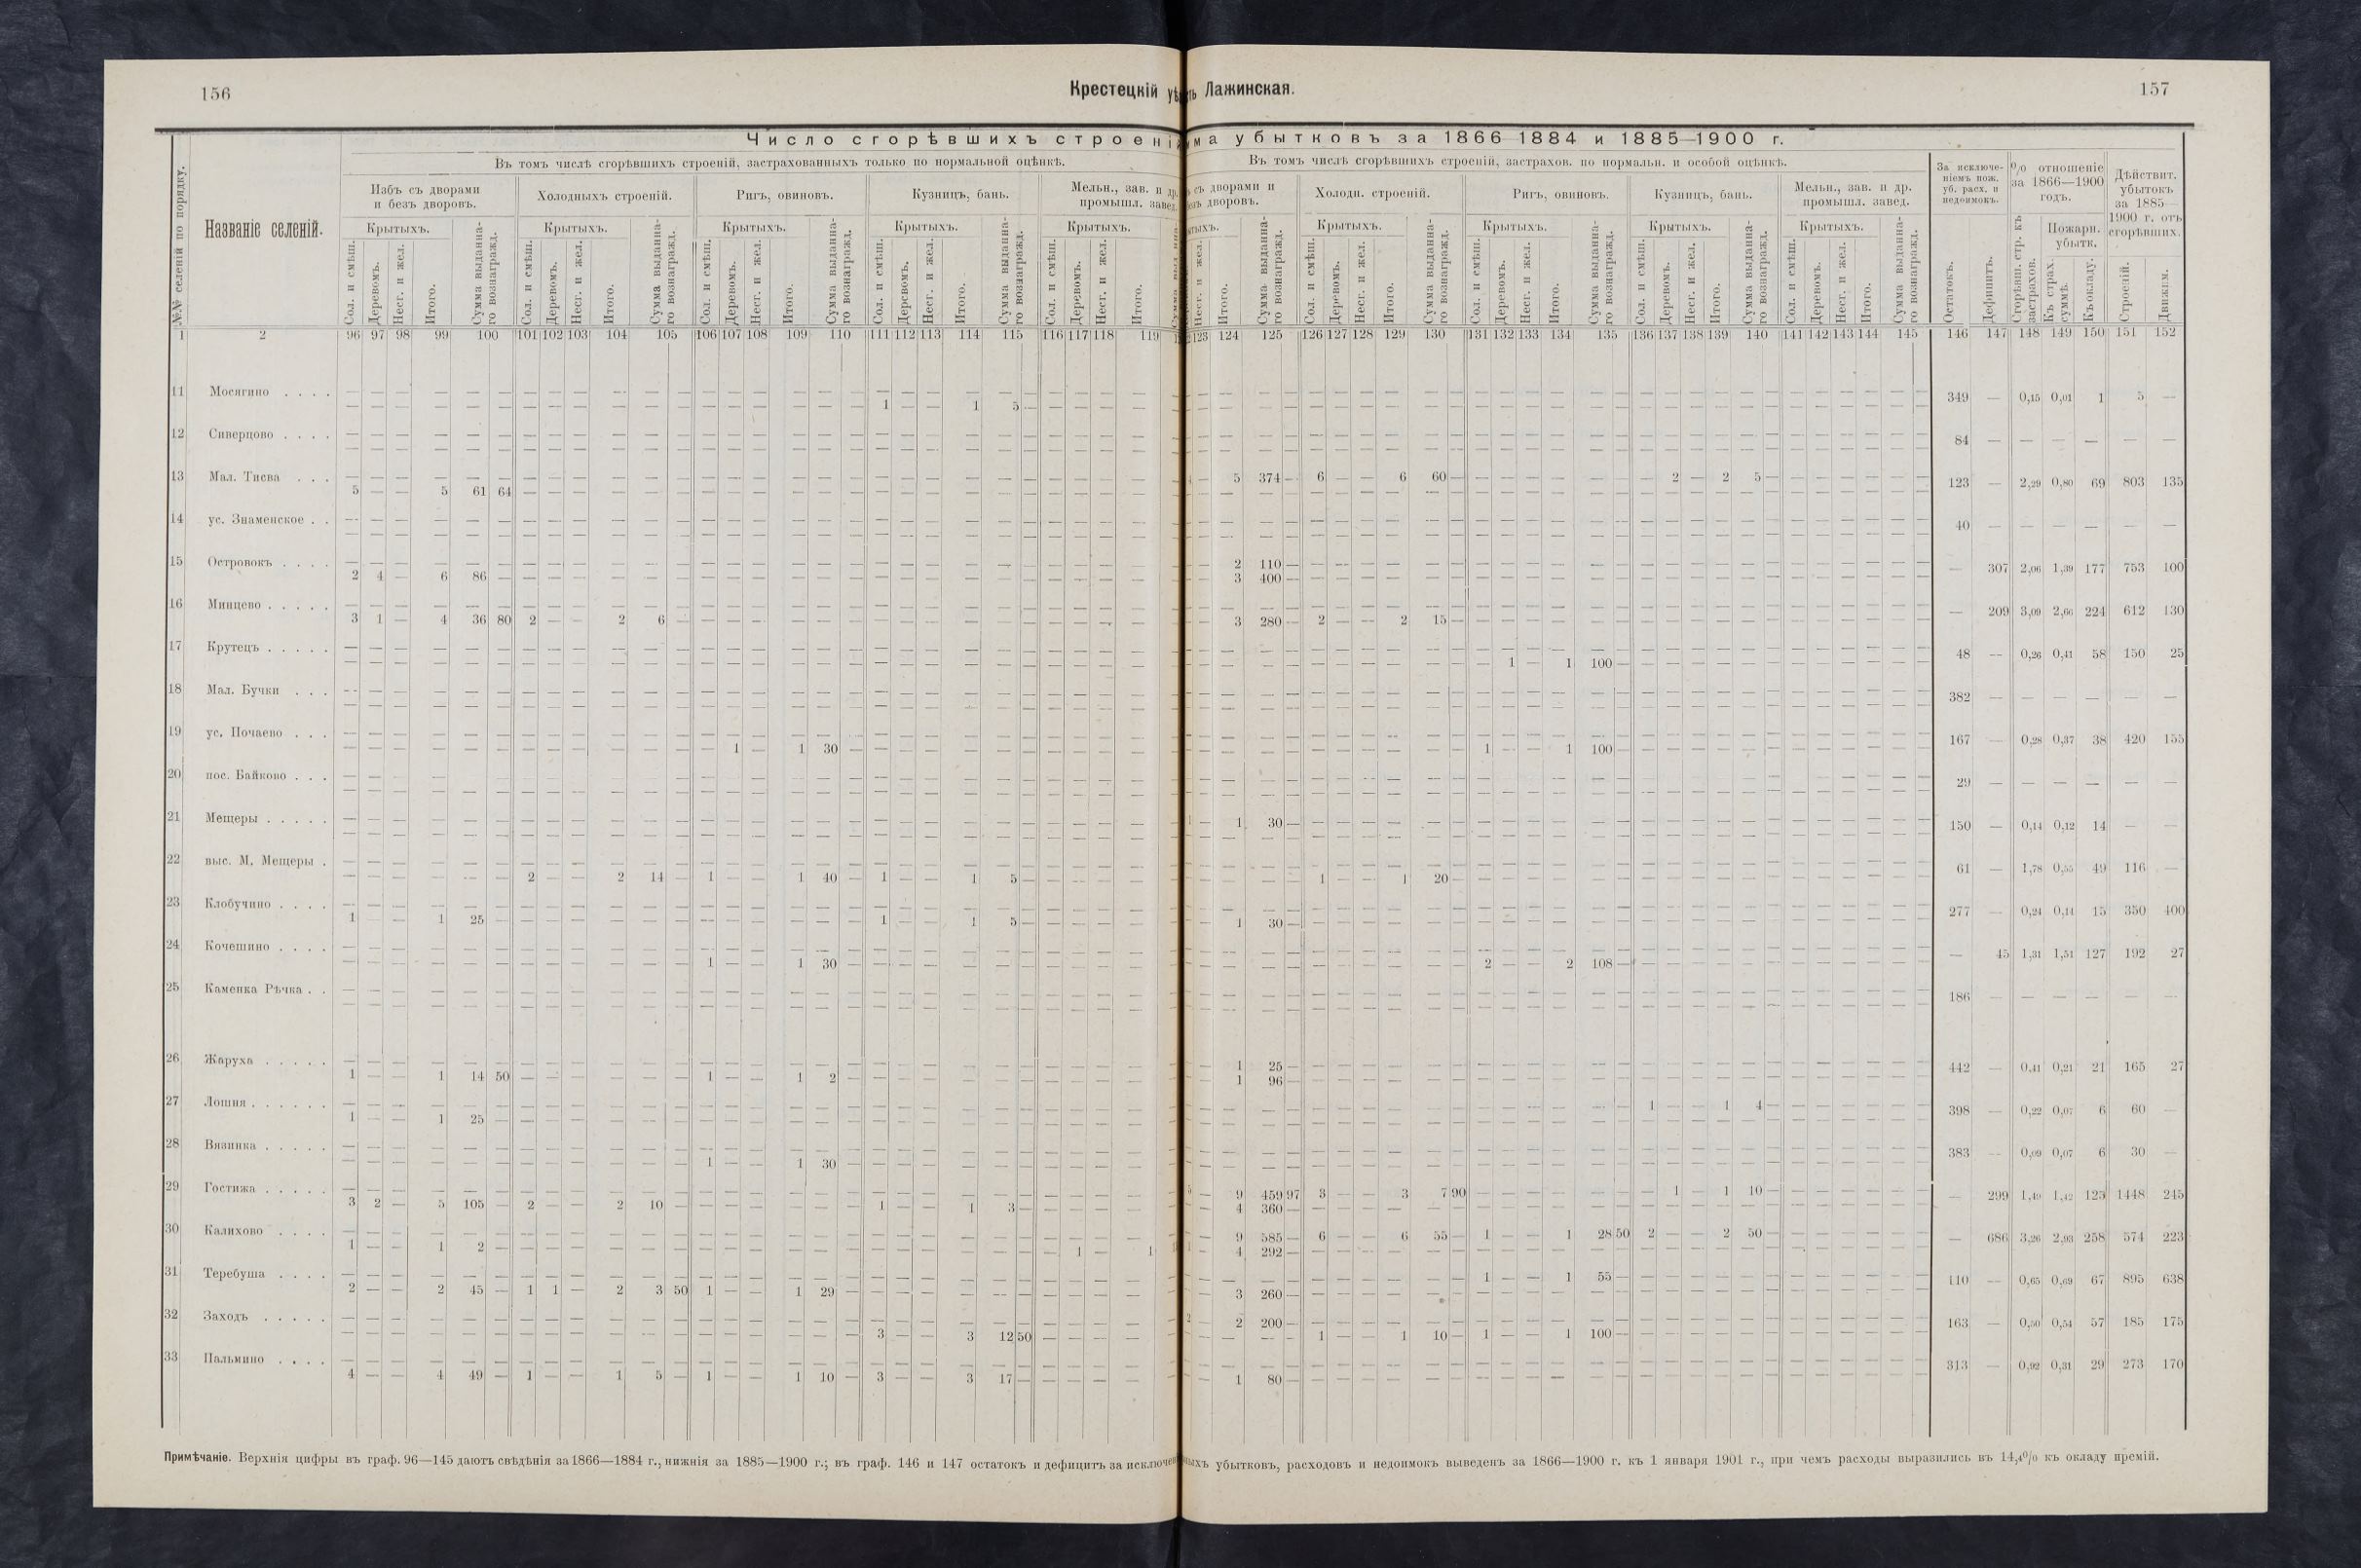 156
Крестецкій уѣ ть Лажинская.
157
Число сгорѣвшихъ строені ма убытковъ за 1866 1884 и 1885—1900 г.
№№ селеній по порядку.
Названіе селеній.
Въ томъ числѣ сгорѣвшихъ строеній, застрахованныхъ только по нормальной оцѣнкѣ.
Въ томъ числѣ сгорѣвшихъ строеній, застрахов. по нормальн. и особой оцѣнкѣ.
Избъ съ дворами и безъ дворовъ.
Холодныхъ строеній.
Ригъ, овиновъ.
Кузницъ, бань.
Мельн., зав. и др. промышл. завед.
съ дворами и дворовъ.
Холодн. строеній.
Ригъ, овиновъ.
Кузницъ, бань.
Мельн., зав. и др. промышл. завед.
За исключе-ніемъ пож. уб. расх. и недоимокъ.
% отношеніе за 1866—1900 годъ.
Дѣйствит. убытокъ за 1885—1900 г. отъ сгорѣвших.
Крытыхъ. Сол. и смѣш. Деревомъ. Несг. и жел. Итого. Сумма выданна-го вознагражд.
Остатокъ. Дефицитъ. Сгорѣвш. стр. къ застрахов. Пожарн. убытк. Къ страх. суммѣ. Къ окладу. Строеній. Движим.
1 2 96 97 98 99 100 101 102 103 104 105 106 107 108 109 110 111 112 113 114 115 116 117 118 119 123 124 125 126 127 128 129 130 131 132 133 134 135 136 137 138 139 140 141 142 143 144 145 146 147 148 149 150 151 152
11 Мосягино . . . . 349 — 0,15 0,01 1 5 —
1 — — 1 5 —
12 Сиверцово . . . . 84 — — — — — —
13 Мал. Тисва . . . 5 374 — 6 — — 6 60 — 2 — 2 5 — 123 — 2,29 0,80 69 803 135
5 — — 5 61 64
14 ус. Знаменское . . 40 — — — — — —
15 Островокъ . . . . 2 110 — — 307 2,06 1,39 177 753 100
2 4 — 6 86 — 3 400 —
16 Минцево . . . . . — 209 3,09 2,66 224 612 130
3 1 — 4 36 80 2 — — 2 6 — 3 280 — 2 — — 2 15 —
17 Крутецъ . . . . . 48 — 0,26 0,41 58 150 25
1 — 1 100 —
18 Мал. Бучки . . . 382 — — — — — —
19 ус. Почаево . . . 167 — 0,28 0,37 38 420 155
1 — 1 30 — 1 — — 1 100 —
20 пос. Байково . . . 29 — — — — — —
21 Мещеры . . . . . 1 30 — 150 — 0,14 0,12 14 — —
22 выс. М. Мещеры . 61 — 1,78 0,55 49 116 —
2 — — 2 14 — 1 — — 1 40 — 1 — — 1 5 — 1 — — 1 20 —
23 Клобучино . . . . 277 — 0,24 0,14 15 350 400
1 — — 1 25 — 1 — — 1 5 — 1 30 —
24 Кочешино . . . . — 45 1,31 1,51 127 192 27
1 — — 1 30 — 2 — — 2 108 —
25 Каменка Рѣчка . . 186 — — — — — —
26 Жаруха . . . . . 1 25 — 442 — 0,41 0,21 21 165 27
1 — — 1 14 50 1 — — 1 2 — 1 96 —
27 Лошня . . . . . . 1 — — 1 4 — 398 — 0,22 0,07 6 60 —
1 — — 1 25 —
28 Вязинка . . . . . 383 — 0,09 0,07 6 30 —
1 — — 1 30 —
29 Гостижа . . . . . 9 459 97 3 — — 3 7 90 1 — 1 10 — — 299 1,49 1,42 123 1448 245
3 2 — 5 105 — 2 — — 2 10 — 1 — — 1 3 — 4 360 —
30 Калихово . . . . 9 585 — 6 — — 6 55 — 1 — — 1 28 50 2 — — 2 50 — — 686 3,26 2,93 258 574 223
1 — — 1 2 — 1 — 1 4 292 —
31 Теребуша . . . . 1 — — 1 55 — 110 — 0,65 0,69 67 895 638
2 — — 2 45 — 1 1 — 2 3 50 1 — — 1 29 — 3 260 —
32 Заходъ . . . . . 2 200 — 163 — 0,50 0,54 57 185 175
3 — — 3 12 50 1 — — 1 10 — 1 — — 1 100 —
33 Пальмино . . . . 313 — 0,92 0,31 29 273 170
4 — — 4 49 — 1 — — 1 5 — 1 — — 1 10 — 3 — — 3 17 — 1 80 —
Примѣчаніе. Верхнія цифры въ граф. 96—145 даютъ свѣдѣнія за 1866—1884 г., нижнія за 1885—1900 г.; въ граф. 146 и 147 остатокъ и дефицитъ за исключен ныхъ убытковъ, расходовъ и недоимокъ выведенъ за 1866—1900 г. къ 1 января 1901 г., при чемъ расходы выразились въ 14,4% къ окладу премій.